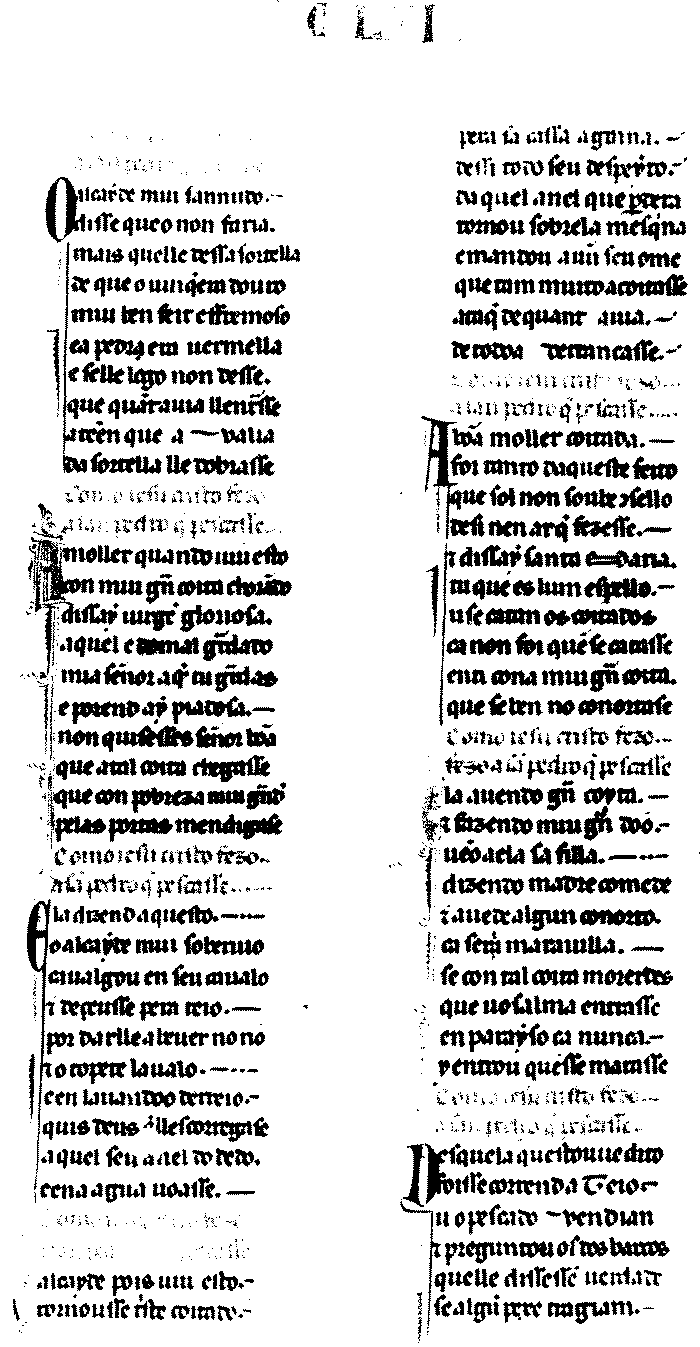 C L V I
O alcaýde mui sannudo.
disse que o non faria.
mais quelle dessa sortella
de que o uinq̃em douro
mui ben feit e fremoso
e a pedra era uermella
e selle logo non desse.
que quãt auia llentrasse
a teẽn que a valia
da sortella lle dobrasse
Como iesu cristo fezo
a san pedro q̃ pescasse.
A moller quando uiu esto
con mui gñ coita chorãdo
dissaý uirgẽ gloriosa.
aquel e do mal gũdado
mia señor aq̃ tu gũdas
e porend aý piadosa.
non quisesses señor bõa
que atal coita chegasse
que con pobreza mui gñd
pelas portas mendigasse
Como iesu cristo fezo.
a sã pedro q̃ pescasse.
Ela dizend aquesto.
o alcaýde mui soberuio
caualgou en seu caualo
⁊ decesse pera reio.
por darlle a beuer no rio
⁊ o topete laualo.
e en lauandoo dereito.
quis deus ꝗ̃ lle scorregasse
aquel seu anel do dedo.
e ena agua uoasse.
Como iesu cristo fezo
alcaýde pois uiu esto.
tornousse triste coitado.
pera sa cassa agĩna.
dessi todo seu despeýto.
daquel anel que pera
tornou sobrela mesq̃na
e mandou a uũ seu ome
que tam muito acoitasse
ataq̃ de quant auia.
de toda derrancasse.
Como iesu cristo fezo
a san pedro q̃ pescasse.
A bõa moller coitada.
foi tanto daqueste feito
que sol non soube ꝯsello
desi nen arq̃ fezesse.
⁊ dissaý santa Maria.
tu que es lum espello.
u se catan os coitados
ca non foi que se catasse
en ti cona mui gñ coita.
que se ben no conortasse
Como iesu cristo fezo.
a sã pedro q̃ pescasse
Ela auendo gñ coyta.
⁊ fazendo mui gñ doo.
ueo a ela sa filla.
dizendo madre comede
⁊ auede algun conorto.
ca será marauilla.
se con tal coita morerdes
que uossalma entrasse
en paraýso ca nunca.
ý entrou quesse matasse
Como iesu cristo fezo
a sã pedro q̃ pescasse.
Desque la questo uue dito
foisse correnda
u o pescado vendian
⁊ preguntou os dos barcos
quelle dissessẽ uerdade
se algũ pexe tragiam.